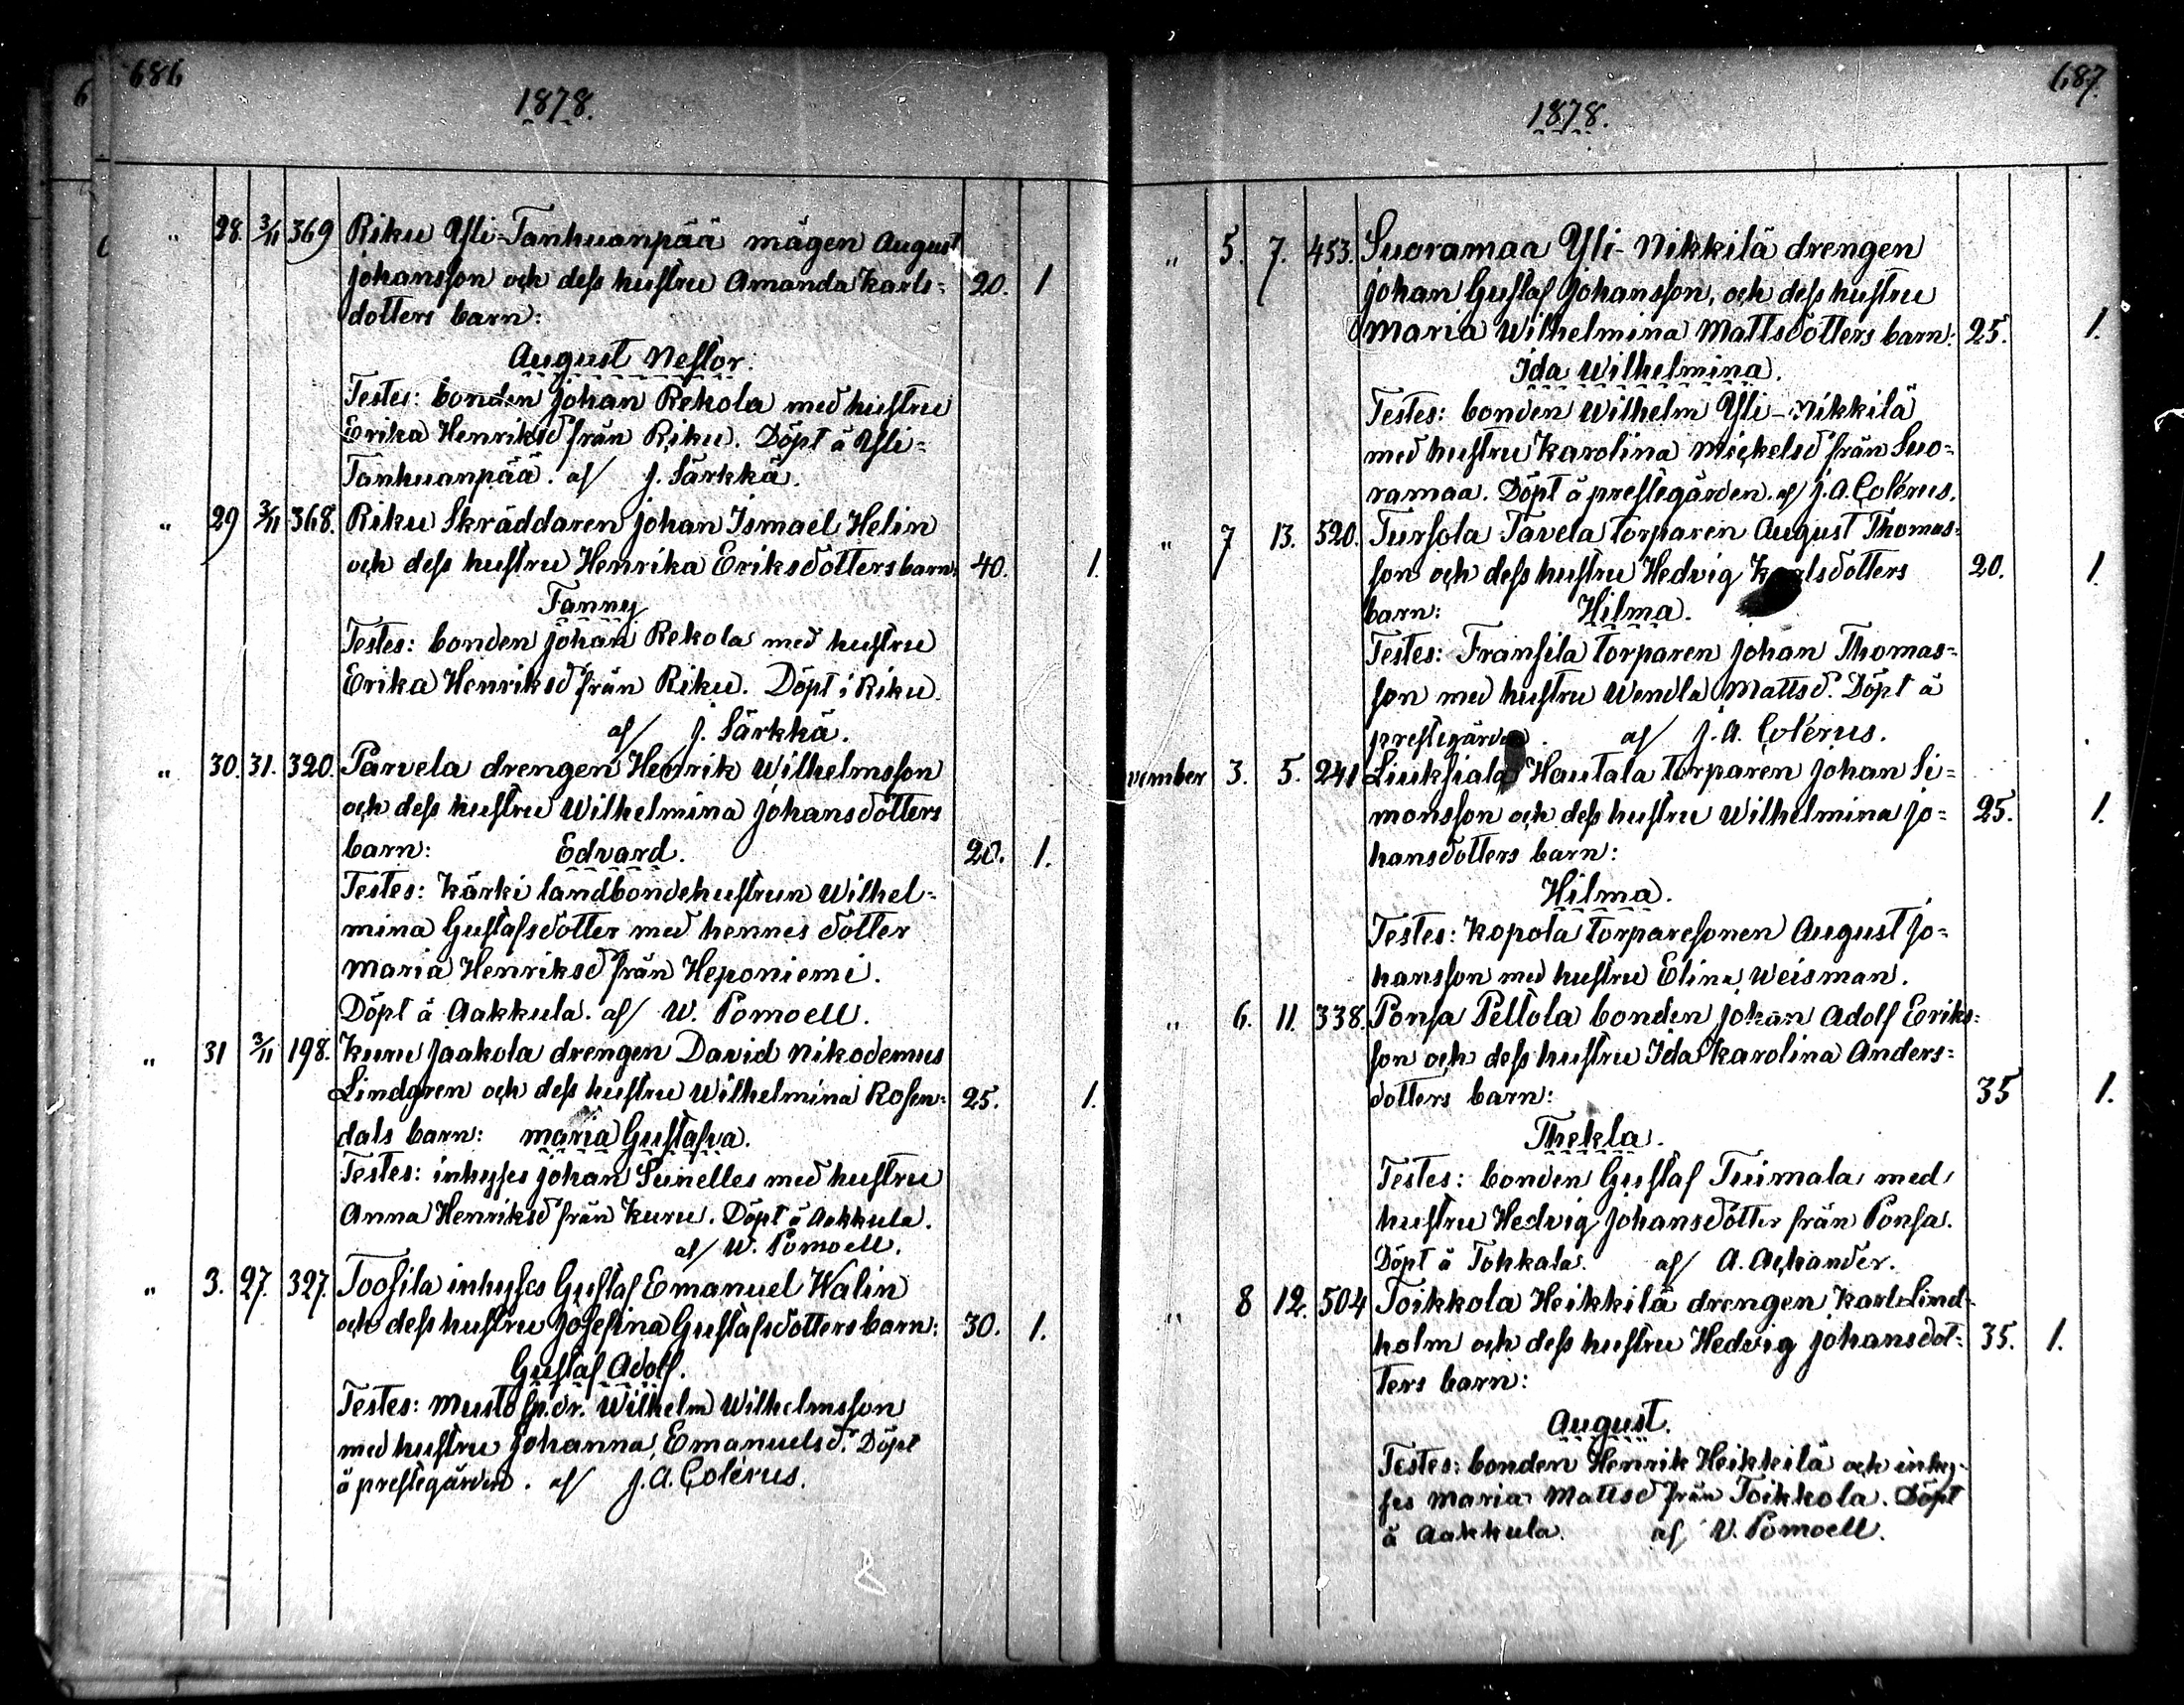 686
1878.
" 28. 3/11 369 Riku Yli-Tanhuanpää mågen August
Johansson och dess hustru Amanda Karls= 20. 1
dotters barn:
August Nestor.
Testes: bonden Johan Rekola med hustru
Erika Henriksd från Riku. Döpt å Yli=
Tanhuanpää. af J. Särkkä.
" 29 3/11 368. Riku Skräddaren Johan Ismael Helin
och dess hustru Henrika Eriksdotters barn: 40. 1.
Fanny
Testes: bonden Johan Rekola med hustru
Erika Henriksd från Riku. Döpt i Riku.
af J. Särkkä.
" 30. 31. 320. Parvela drengen Henrik Wilhelmsson
och dess hustru Wilhelmina Johansdotters
barn: Edvard. 20. 1.
Testes: Kärki landbondehustrun Wilhel=
mina Gustafsdotter med hennes dotter
Maria Henriksd från Heponiemi.
Döpt å Aakkula. af W. Pomoell.
" 31 3/11 198. Kuru Jaakola drengen David Nikodemus
Lindgren och dess hustru Wilhelmina Rosen= 25. 1.
dals barn: Maria Gustafva.
Testes: inhyses Johan Sunelles med hustru
Anna Henriksd från Kuru. Döpt å Aakkula.
af W. Pomoell.
" 3. 27. 327. Toosila inhyses Gustaf Emanuel Walin
och dess hustru Josefina Gustafsdotters barn: 30. 1.
Gustaf Adolf.
Testes: Musto sp.dr. Wilhelm Wilhelmsson
med hustru Johanna Emanuelsd. Döpt
å prestegården. af J. A. Colérus.
687.
1878.
" 5. 7. 453. Suoramaa Yli-Nikkilä drengen
Johan Gustaf Johansson, och dess hustru
Maria Wilhelmina Mattsdotters barn: 25. 1.
Ida Wilhelmina.
Testes: bonden Wilhelm Yli-Nikkilä
med hustru Karolina Mickelsd från Suo=
ramaa. Döpt å prestegården. af J. A. Colérus.
" 7 13. 520. Tursola Tavela torparen August Thomas=
son och dess hustru Hedvig Karlsdotters 20. 1.
barn: Hilma.
Testes: Fransila torparen Johan Thomas=
son med hustru Wendla Mattsd. Döpt å
prestegården. af J. A. Colérus.
vember 3. 5. 241 Liuksiala Hautala torparen Johan Si=
monsson och dess hustru Wilhelmina Jo= 25. 1.
hansdotters barn:
Hilma.
Testes: Kopola torparesonen August Jo=
hansson med hustru Elina Weisman.
" 6. 11. 338. Ponsa Pellola bonden Johan Adolf Eriks=
son och dess hustru Ida Karolina Anders=
dotters barn: 35 1.
Thekla.
Testes: bonden Gustaf Tuimala med
hustru Hedvig Johansdotter från Ponsa.
Döpt å Tohkala. af A. Ackander.
" 8 12. 504 Toikkola Heikkilä drengen Karl Lind=
holm och dess hustru Hedvig Johansdot= 35. 1.
ters barn:
August.
Testes: bonden Henrik Heikkilä och inhy=
ses Maria Mattsd från Toikkola. Döpt
å Aakkula. af V. Pomoell.